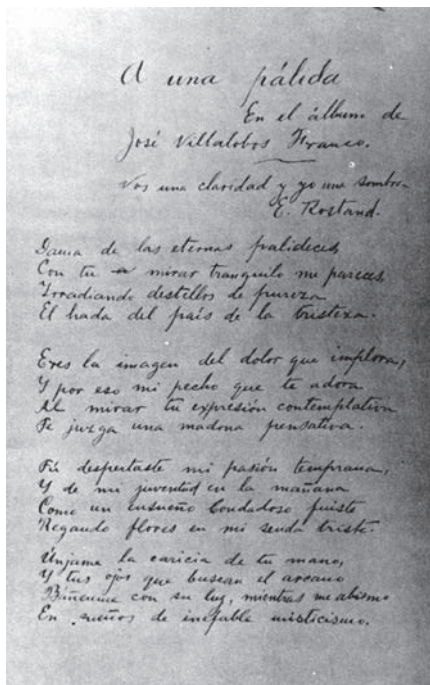 A una pálida
En el álbum de
José Villalobos Franco.
Vos una claridad y yo una sombra
E. Rostand.
Dama de las eternas palideces
Con tu mirar tranquilo me pareces,
Irradiando destellos de pureza
El hada del país de la tristeza.
Eres la imagen del dolor que implora,
Y por eso mi pecho que te adora
Al mirar tu expresión contemplativa
Te juzga una madona pensativa.
Tú despertaste mi pasión temprana,
Y de mi juventud en la mañana
Como un ensueño bondadoso fuiste
Regando flores en mi senda triste.
Únjame la caricia de tu mano,
Y tus ojos que buscan el arcano
Báñenme con su luz, mientras me abismo
En sueños de inefable misticismo.